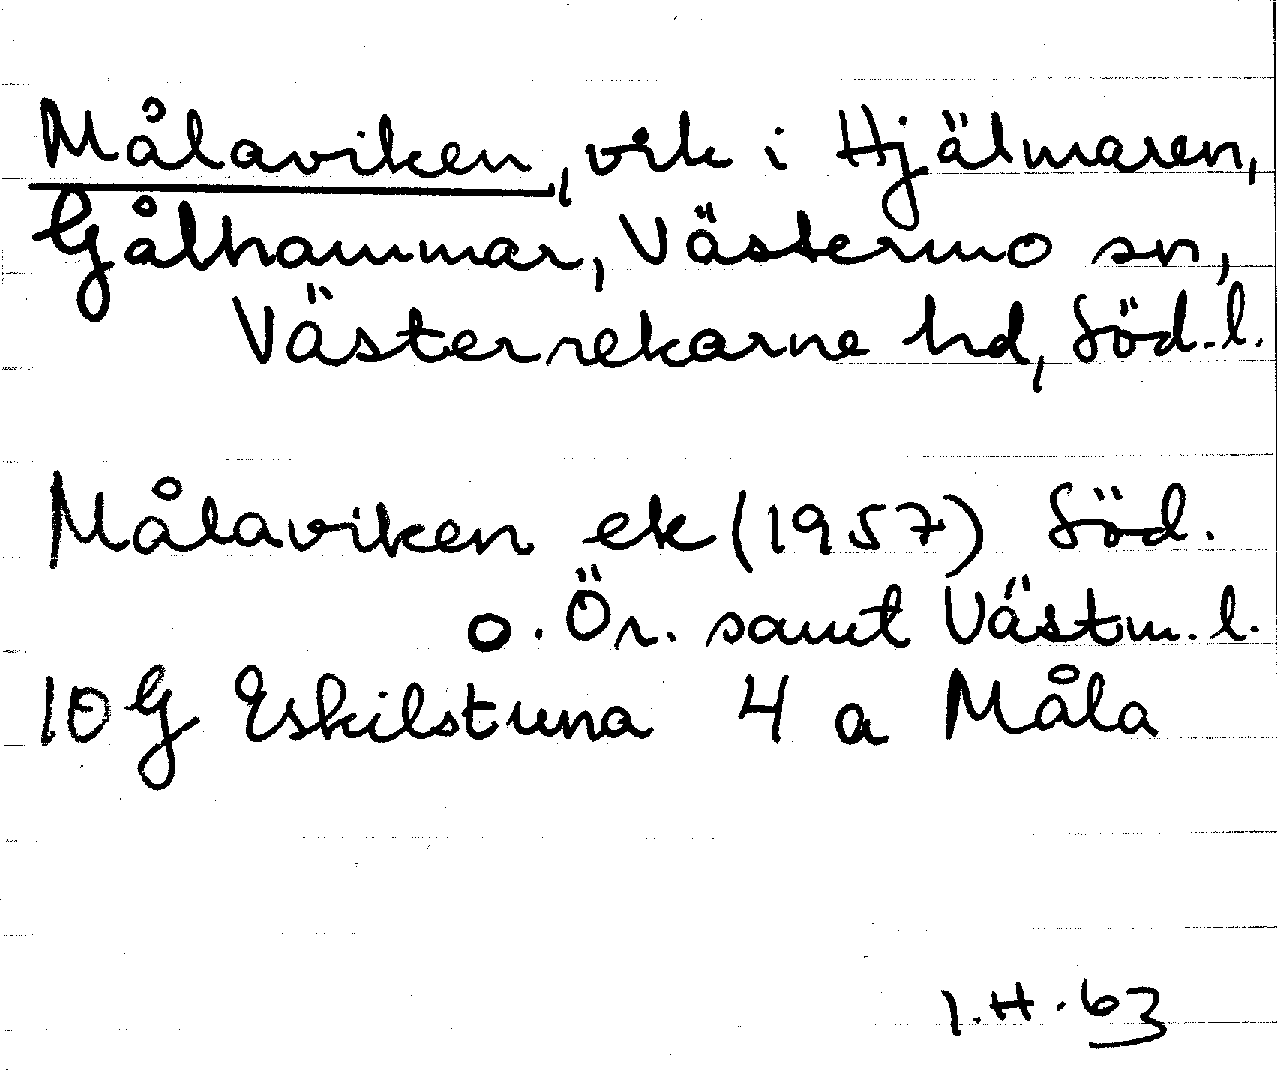 Målaviken, vik i Hjälmaren,
Gålhammar, Västermo sn,
Västerrekarne hd, Söd. l.
Målaviken ek (1957) Söd.
o. Ör. samt Västm. l.
10 G Eskilstuna 4 a Måla
I.H. 63